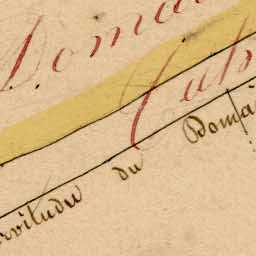 Doma
Cub
rvitudu du Domai